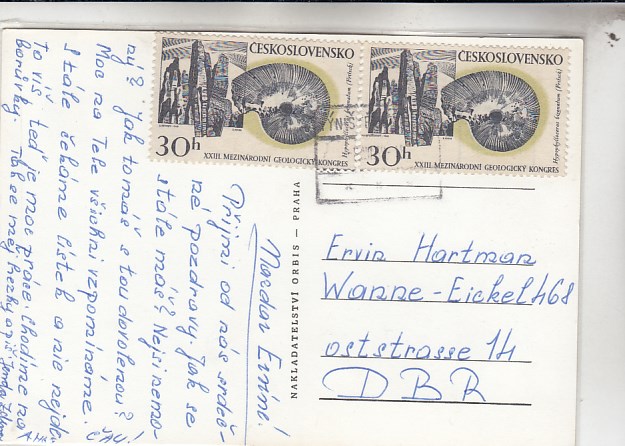 ČESKOSLOVENSKO
Hypophylloceras bizonatum (Fritsch)
30h
XXIII. MEZINÁRODNÍ GEOLOGICKÝ KONGRES
ČESKOSLOVENSKO
Hypophylloceras bizonatum (Fritsch)
30h
XXIII. MEZINÁRODNÍ GEOLOGICKÝ KONGRES
Ervine!
Příjmi od nás srdeč-
né pozdravy. Jak se
stále máš? Nejsi nemo-
ný? Jak to máš s tou dovolenou?
Moc na Tebe všichni vzpomínáme.
Stále čekáme lístek a nic nejde
To víš teď je moc práce. Chodíme na
borůvky. Tak se měj hezky a piš
NAKLADATELSTVÍ ORBIS — PRAHA
Ervin Hartman
Wanne-Eickel 468
oststrasse 14
DBR